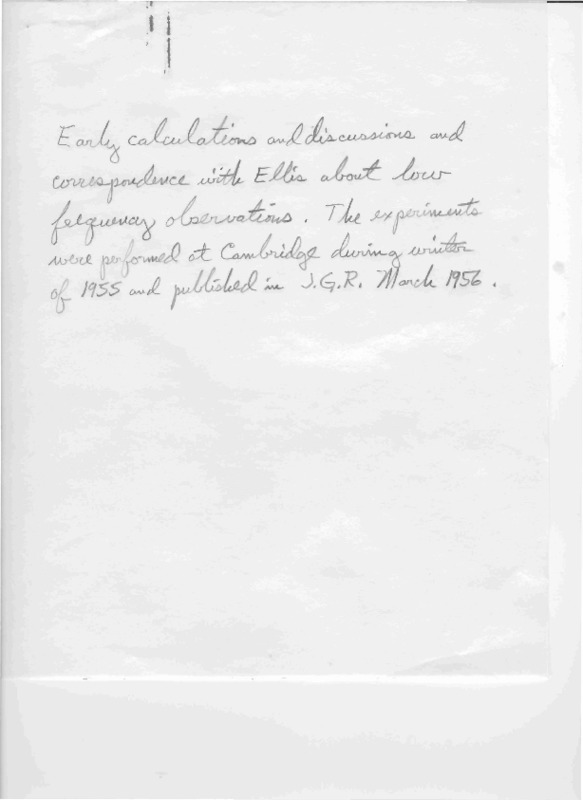 Early calculations and discussions and
correspondence with Ellis about low
felquency observations. The experiments
were performed at Cambridge during winter
of 1955 and published in J.G.R. March 1956.